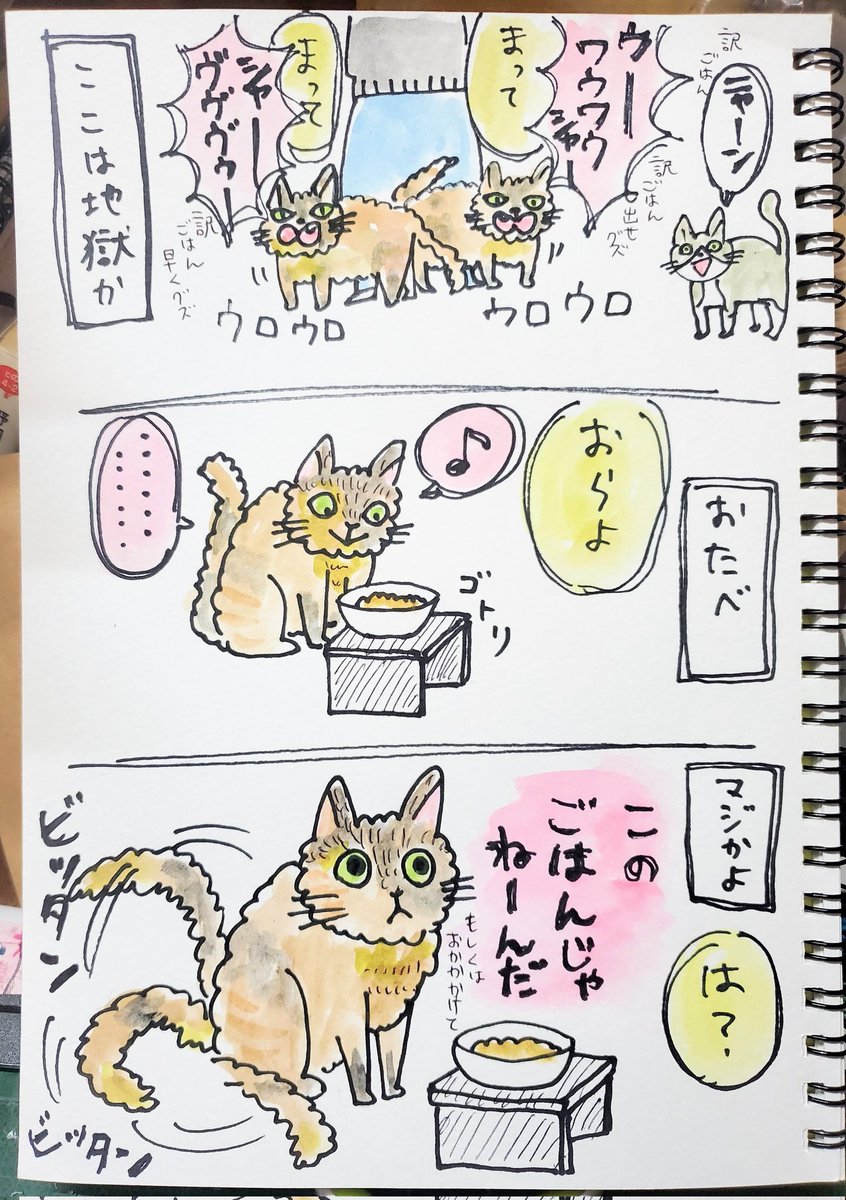 訳
ごはん
ニャーン
ウー
ワウワウ
シャー
訳
ごはん
出せ
グズ
まって
まって
シャー
ヴヴヴゥー
訳
ごはん
早くグズ
ここは地獄か
ウロウロ
ウロウロ
おたべ
おらよ
♪
ゴトリ
⋯⋯⋯⋯
マジかよ
は?
この
ごはんじゃ
ねーんだ
もしくは
おかかかけて
ビッタン
ビッタン